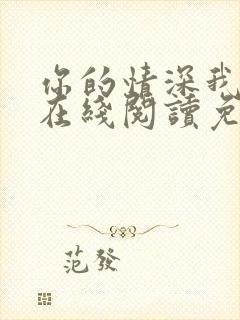 你的情深我
在綫閱讀免
范發